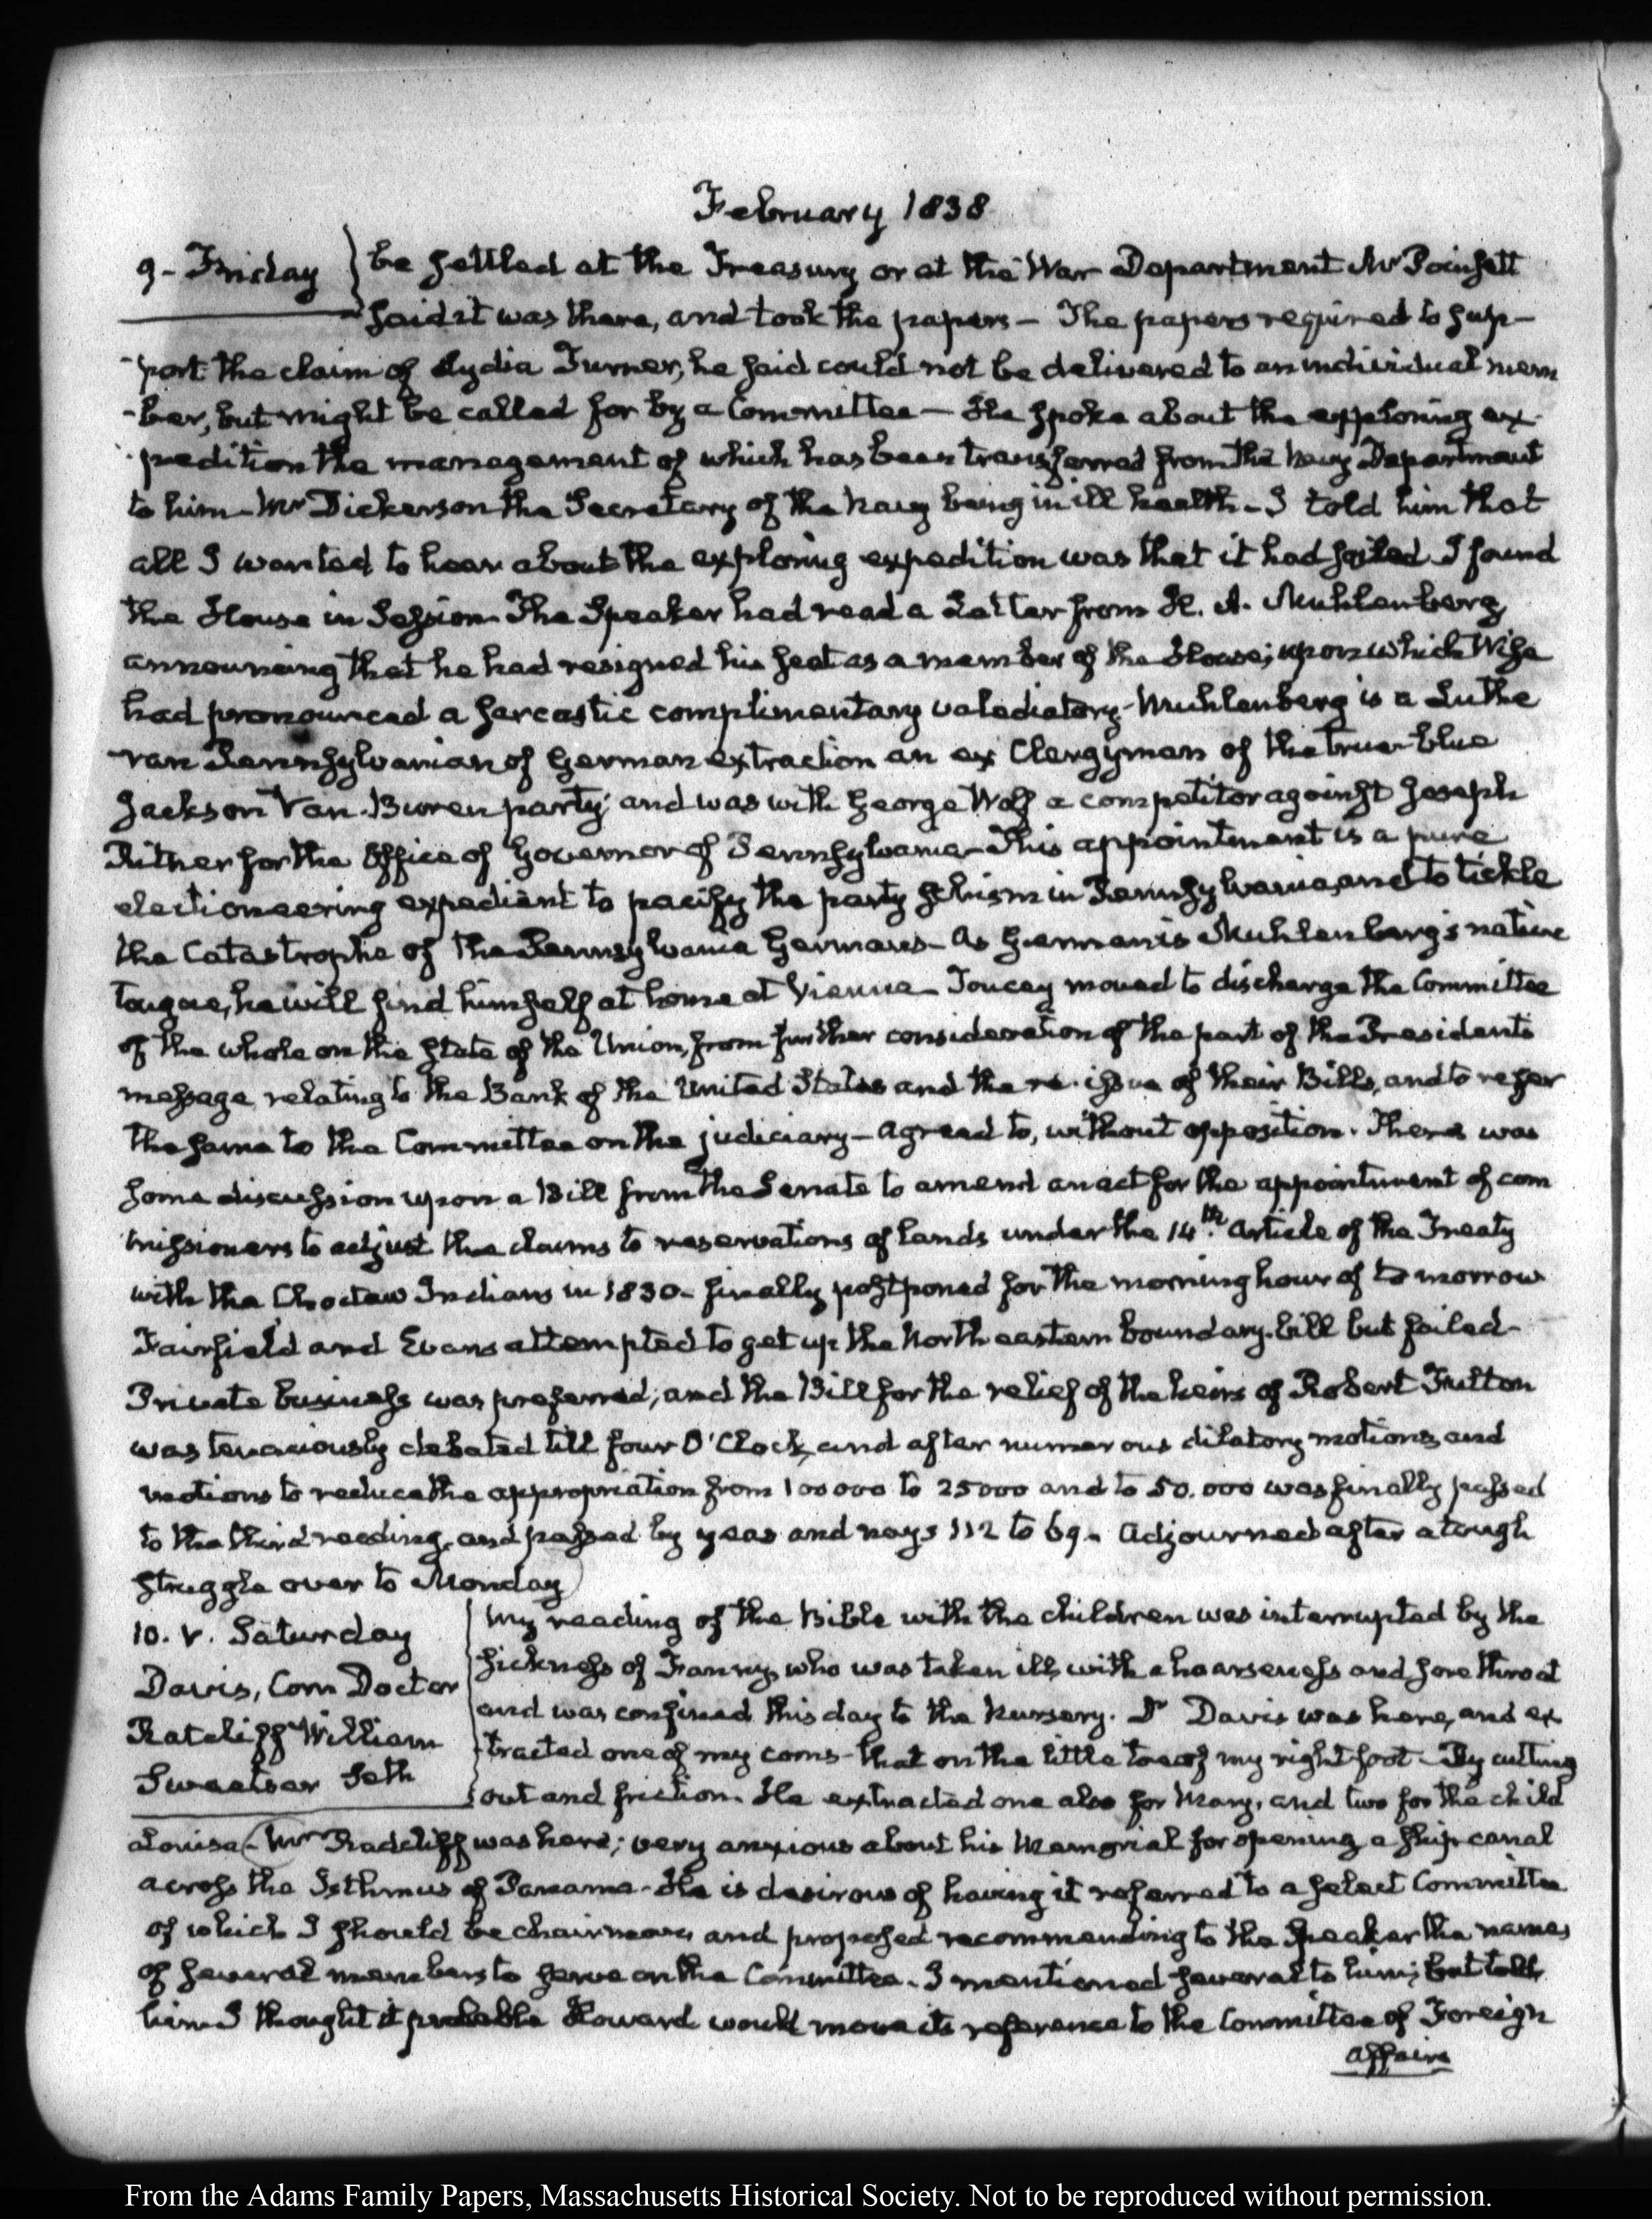 February 1838
9- Friday
be settled at the Treasury or at the War Department Mr Poinsett
said it was there, and took the papers — The papers required to sup-
-port the claim of Lydia Turner, he said could not be delivered to an individual mem
-ber, but might be called for by a Committee — He spoke about the exploring ex-
-pedition the management of which has been transferred from the Navy Department
to him — Mr Dickerson the Secretary of the Navy being in ill health — I told him that
all I wanted to hear about the exploring expedition was that it had sailed I found
the House in Session. The Speaker had read a Letter from H. A. Muhlenberg
announcing that he had resigned his seat as a member of the House; upon which Wise
had pronounced a sarcastic complimentary valedictory — Muhlenberg is a Luthe
-ran Pennsylvanian of German extraction an ex Clergyman of the true-blue
Jackson Van-Buren party; and was with George Wolf a competitor against Joseph
Ritner for the Office of Governor of Pennsylvania — This appointment is a pure
electioneering expedient to pacify the party schism in Pennsylvania, and to tickle
the Catastrophe of the Pennsylvania Germans — As German is Muhlenberg's native
tongue, he will find himself at home at Vienna — Toucey moved to discharge the Committee
of the whole on the state of the Union, from further consideration of the part of the Presidents
message relating to the Bank of the United States and the re-issue of their Bills, and to refer
the same to the Committee on the judiciary — agreed to, without opposition. There was
some discussion upon a Bill from the Senate to amend an act for the appointment of com
missioners to adjust the claims to reservations of lands under the 14th. article of the Treaty
with the Choctaw Indians in 1830 — finally postponed for the morning hour of to morrow
Fairfield and Evans attempted to get up the North eastern boundary bill but failed-
Private business was preferred; and the Bill for the relief of the heirs of Robert Fulton
was tenaciously debated till four O'Clock, and after numerous dilatory motions, and
motions to reduce the appropriation from 100 000 to 25000 and to 50.000 was finally passed
to the third reading, and passed by yeas and nays 112 to 69. Adjourned after a tough
struggle over to Monday
10. V. Saturday
Davis, Corn Doctor
Ratcliff William
Sweetser Seth
My reading of the Bible with the children was interrupted by the
sickness of Fanny, who was taken ill, with a hoarseness and sore throat
and was confined this day to the Nursery. Dr Davis was here, and ex
tracted one of my corns — that on the little toe of my right foot — By cutting
out and friction. He extracted one also for Mary, and two for the child
Louisa — Mr Radcliff was here; very anxious about his Memorial for opening a ship canal
across the Isthmus of Panama — He is desirous of having it referred to a select Committee
of which I should be chairman, and proposed recommending to the Speaker the names
of several members to serve on the Committee. I mentioned several to him; but told
him I thought it probable Howard would move its reference to the Committee of Foreign
affairs
From the Adams Family Papers, Massachusetts Historical Society. Not to be reproduced without permission.